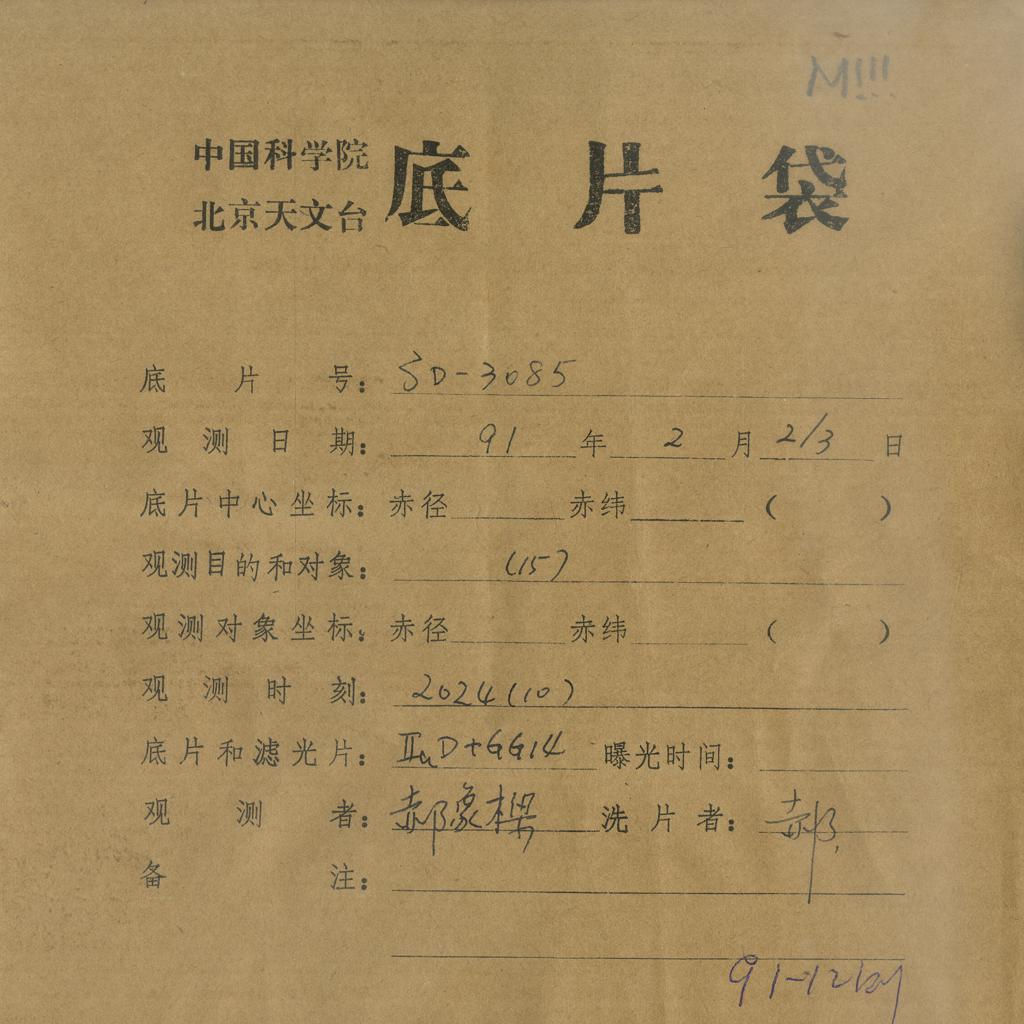 中国科学院
北京天文台
底片袋
底片号：SD-3085
观测日期：91年2月2/3日
底片中心坐标：赤径 赤纬 （ ）
观测目的和对象：(15)
观测对象坐标：赤径 赤纬 （ ）
观测时刻：2024(10)
底片和滤光片：IIaD+GG14 曝光时间：
观测者：郝象樑 洗片者：郝
备注：